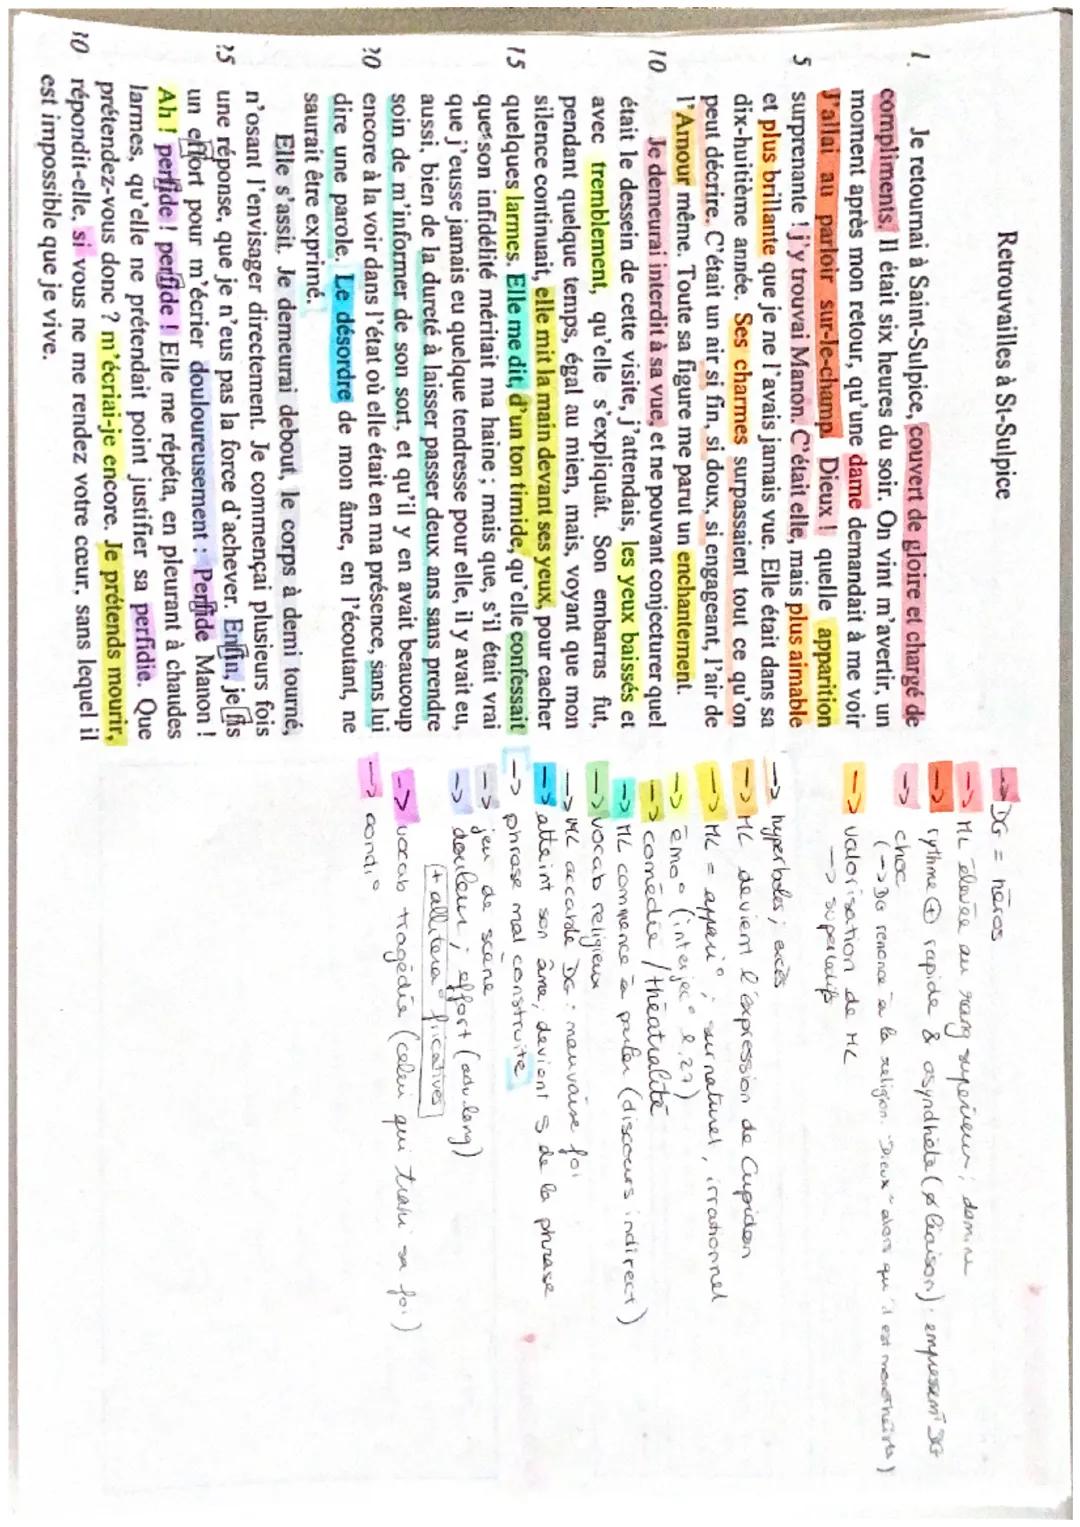 Retrouvailles à St-Sulpice
1. Je retournai à Saint-Sulpice, couvert de gloire et chargé de
compliments. Il était six heures du soir. On vint m'avertir, un
moment après mon retour, qu'une dame demandait à me voir
J'allai au parloir sur-le-champ Dieux ! quelle apparition
5 surprenante ! j'y trouvai Manon. C'était elle, mais plus aimable
et plus brillante que je ne l'avais jamais vue. Elle était dans sa
dix-huitième année. Ses charmes surpassaient tout ce qu'on
peut décrire. C'était un air si fin, si doux, si engageant, l'air de
l'Amour même. Toute sa figure me parut un enchantement.
10 Je demeurai interdit à sa vue, et ne pouvant conjecturer quel
était le dessein de cette visite, j'attendais, les yeux baissés et
avec tremblement, qu'elle s'expliquât. Son embarras fut,
pendant quelque temps, égal au mien, mais, voyant que mon
silence continuait, elle mit la main devant ses yeux, pour cacher
15 quelques larmes. Elle me dit, d'un ton timide, qu'elle confessait
que son infidélité méritait ma haine ; mais que, s'il était vrai
que j'eusse jamais eu quelque tendresse pour elle, il y avait eu,
aussi, bien de la dureté à laisser passer deux ans sans prendre
soin de m'informer de son sort, et qu'il y en avait beaucoup
20 encore à la voir dans l'état où elle était en ma présence, sans lui
dire une parole. Le désordre de mon âme, en l'écoutant, ne
saurait être exprimé.
Elle s'assit. Je demeurai debout, le corps à demi tourné,
n'osant l'envisager directement. Je commençai plusieurs fois
25 une réponse, que je n'eus pas la force d'achever. Enfin, je fis
un effort pour m'écrier douloureusement : Perfide Manon !
Ah ! perfide ! perfide ! Elle me répéta, en pleurant à chaudes
larmes, qu'elle ne prétendait point justifier sa perfidie. Que
prétendez-vous donc ? m'écriai-je encore. Je prétends mourir,
30 répondit-elle, si vous ne me rendez votre cœur, sans lequel il
est impossible que je vive.
-> DG = héros
-> ML élevée au rang supérieur ; domine
-> rythme + rapide & asyndhète (≠ liaison) : empressemt DG
-> choc
(-> DG renonce à la religion. "Dieux" alors qu'il est monothéiste)
-> valorisation de ML
-> superlatifs
-> hyperboles ; excès
-> ML devient l'expression de Cupidon
-> ML = appari° ; surnaturel, irrationnel
-> émo° (interjec° l.27)
-> comédie / théatralité
-> ML commence à parler (discours indirect)
-> vocab religieux
-> ML accable DG : mauvaise foi
-> atteint son âme, devient S de la phrase
-> phrase mal construite
-> jeu de scène
-> douleur ; effort (adv. long)
+ allitera° fricatives
-> vocab tragédie (celui qui trahi sa foi)
-> condi°